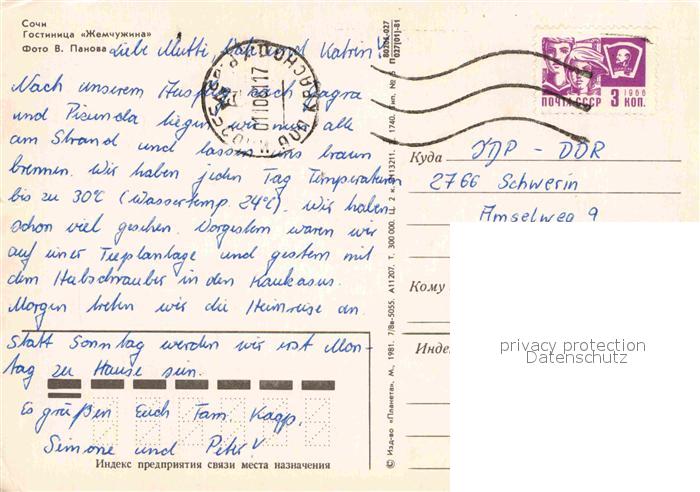 Сочи
Гостиница «Жемчужина»
Фото В. Панова
Liebe Mutti, und Katrin!
Nach unserem nach Gagra
und Pizunda liegen wir nun alle
am Strand und lassen uns braun
brennen. Wir haben jeden Tag Temperaturen
bis zu 30°C (Wassertemp. 24°C). Wir haben
schon viel gesehen. Vorgestern waren wir
auf einer Teeplantage und gestern mit
dem Hubschrauber in den Kaukasus.
Morgen treten wir die Heimreise an.
Statt Sonntag werden wir erst Mon-
tag zu Hause sein.
Es grüßen Euch Fam. Kagp,
Simone und Peter
Индекс предприятия связи места назначения
80204-027
027(01)-81
© Изд-во «Планета». М., 1981. 7/8в-5055. А11207. Т. 300 000. Ц. 2 к. И13211. 1740.
ПОЧТА СССР 3 КОП.
1966
Куда ГДР - DDR
2766 Schwerin
Amselweg 9
Кому
Индекс
privacy protection
Datenschutz